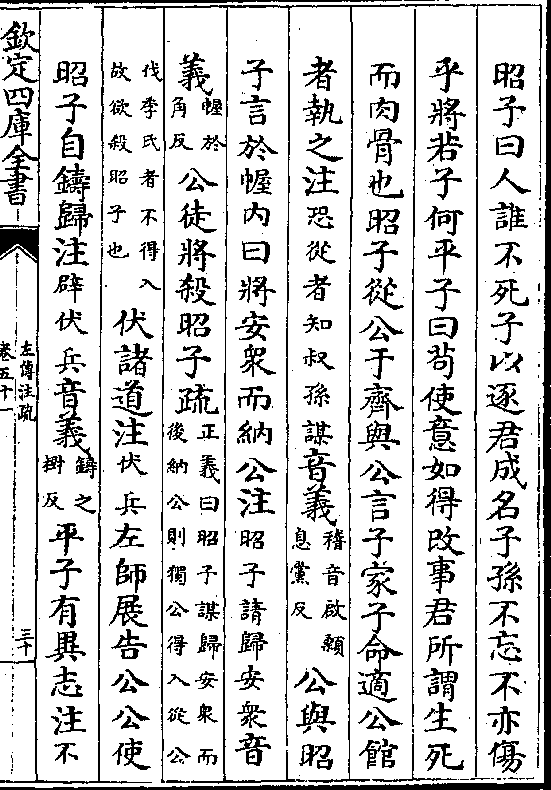 昭子曰人誰不死子以逐君成名子孫不忘不亦傷
乎將若子何平子曰苟使意如得改事君所謂生死
而肉骨也昭子從公于齊與公言子家子命適公館
者執之注恐從者知叔孫謀音義稽音啟顙息黨反公與昭
子言於幄內曰將安衆而納公注昭子請歸安衆音
義幄於角反公徒將殺昭子疏正義曰昭子謀歸安衆而後納公則獨公得入從公
伐季氏者不得入故欲殺昭子也伏諸道注伏兵左師展告公公使
昭子自鑄歸注辟伏兵音義鑄之樹反平子有異志注不
欽定四庫全書
左傳注疏
卷五十一
三十